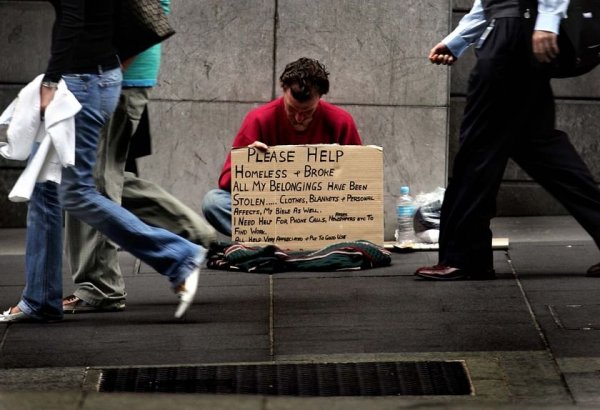 Please Help
Homeless + Broke
All My Belongings Have Been
Stolen..... Clothes, Blankets + Personal
Affects, My Bible As Well.
I Need Help For Phone Calls, Newspapers etc To
Find Work.
All Help Very Appreciated + Put To Good Use